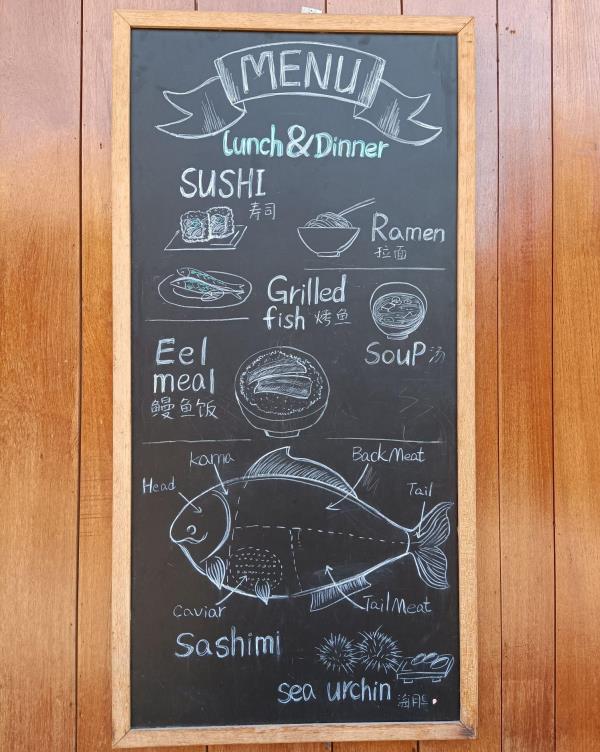 MENU
Lunch&Dinner
SUSHI
寿司
Ramen
拉面
Grilled
fish 烤鱼
Soup 汤
Eel
meal
鳗鱼饭
kama
BackMeat
Head
Tail
Caviar
TailMeat
Sashimi
sea urchin